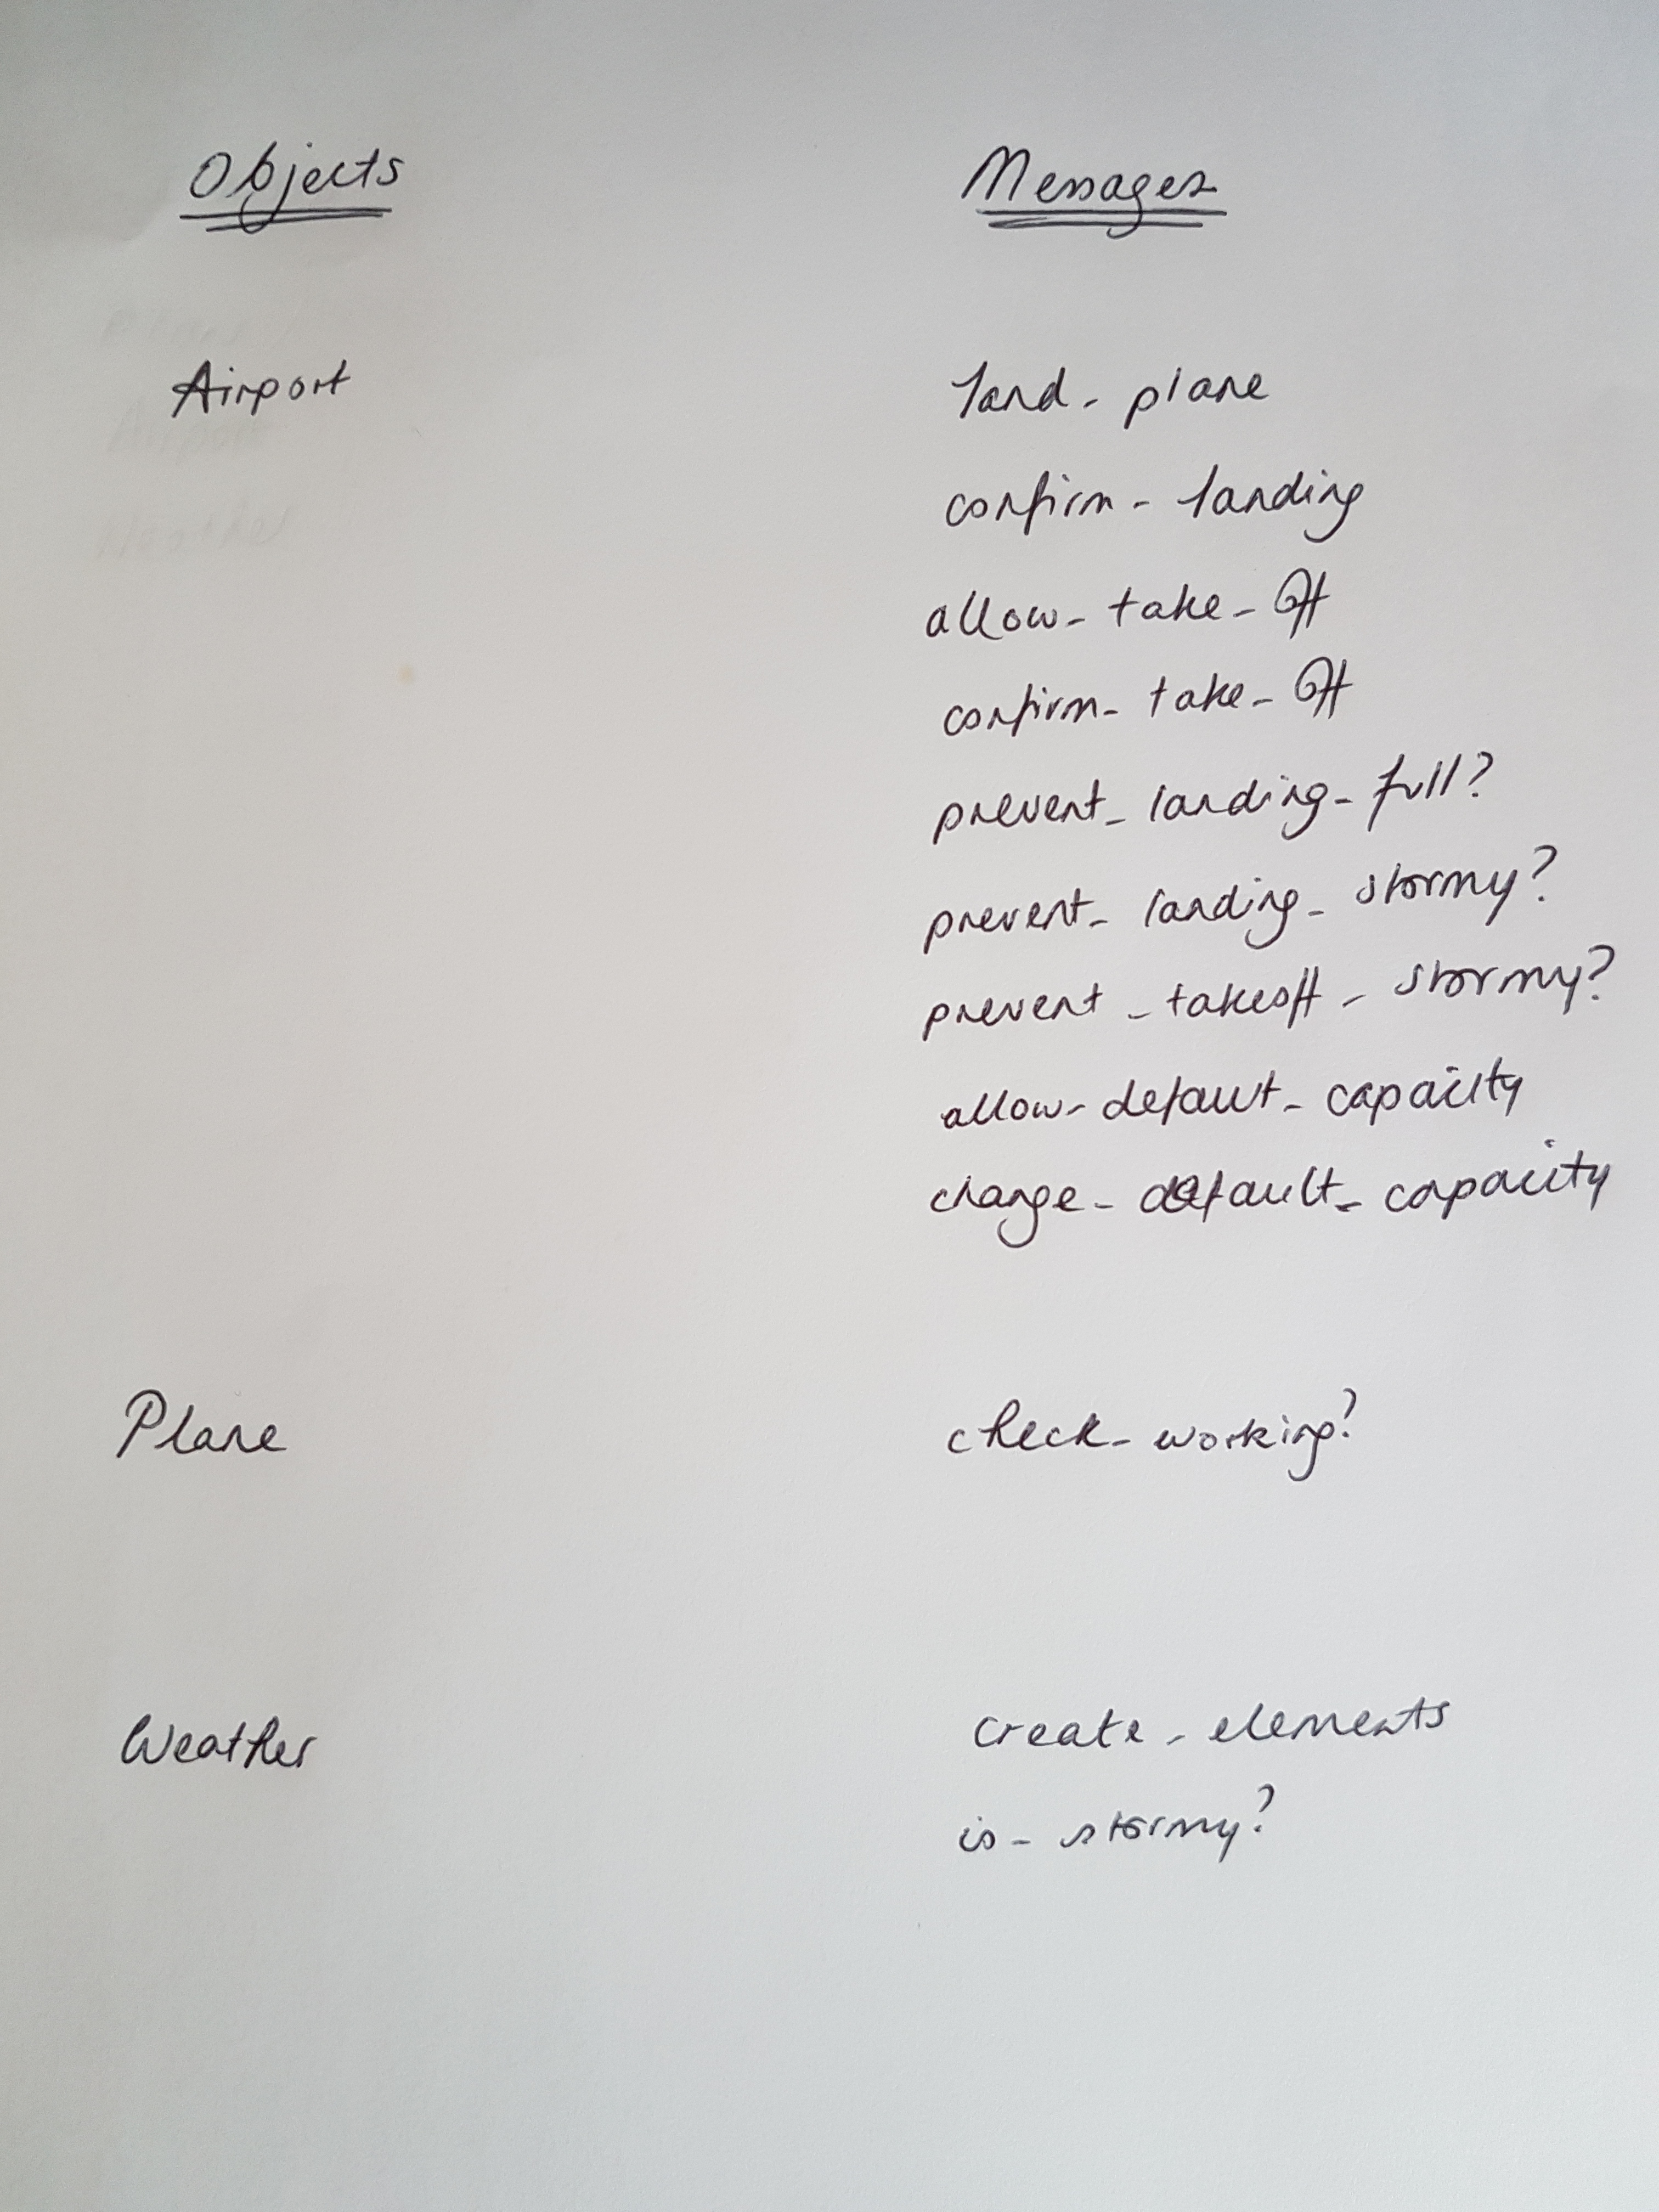 Objects Messages
Airport land_plane
confirm_landing
allow_take_off
confirm_take_off
prevent_landing_full?
prevent_landing_stormy?
prevent_takeoff_stormy?
allow_defaut_capacity
change_default_capacity
Plane check_working?
Weather create_elements
is_stormy?